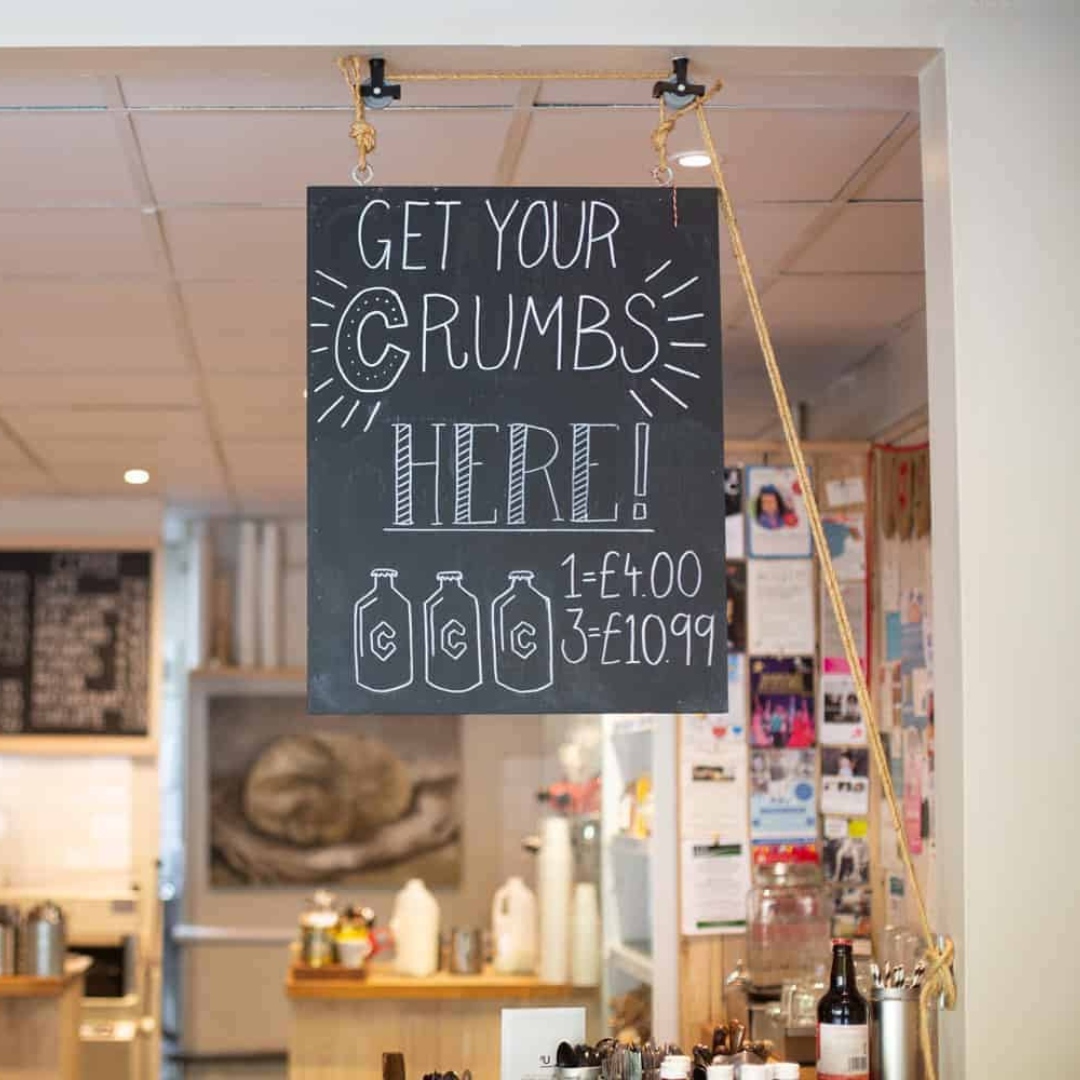 GET YOUR
CRUMBS
HERE!
C C C
1=£4.00
3=£10.99